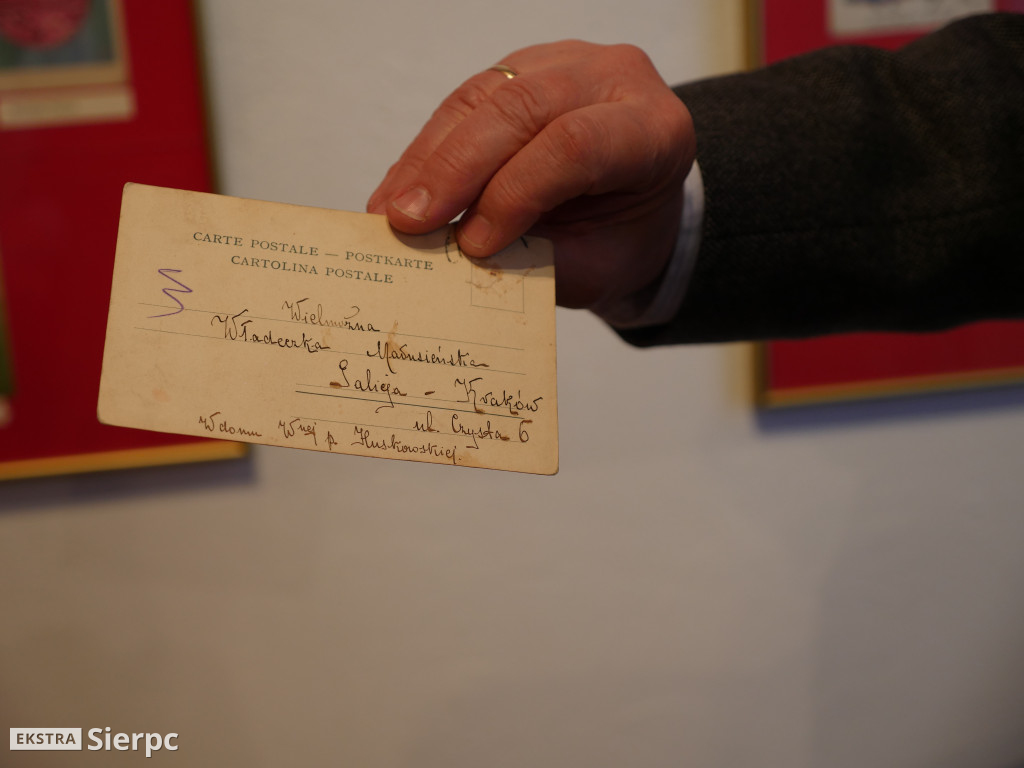 CARTE POSTALE — POSTKARTE
CARTOLINA POSTALE
Wielmożna
Władeczka Małusieńska
Galicja - Kraków
ul. Czysta 6
W domu Wnej p. Huskowskiej.
EKSTRA Sierpc